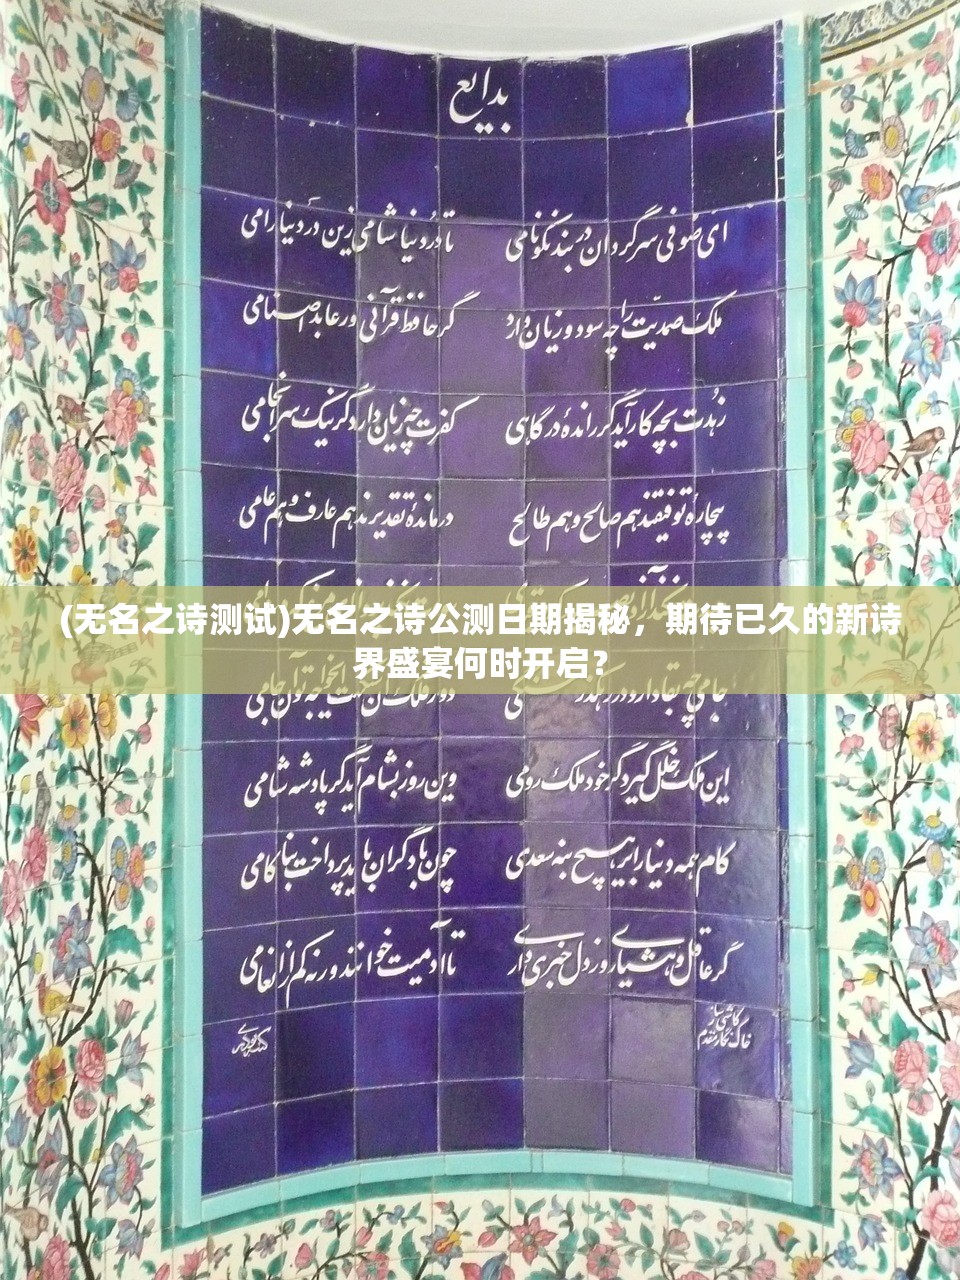 بدایع
ای صوفی سرگردان در بند نکونامی تا درد نیاشامی زین درد نیارامی
ملک صمدیت را چه سود و زیان دارد گر حافظ قرآنی ور عابد اصنامی
زهدت بچه کار آید گر رانده درگاهی کفرت چه زیان دارد گر نیک سرانجامی
بیچاره توفیقند هم صالح و هم طالح درمانده تقدیرند هم عارف و هم عامی
(无名之诗测试)无名之诗公测日期揭秘，期待已久的新诗
界盛宴何时开启？
جامی چه بقا دارد در رهگذر
این ملک خلل گیرد گر خود ملک رومی وین روز بشام آید گر پادشه شامی
کام همه دنیا را بر هیچ بنه سعدی چون با دگران باید پرداخت بناکامی
گر عاقل و هشیاری وز دل خبری داری تا آدمیت خوانند ورنه کم از انعامی
کاشی ساز
خاک نگار مقدم